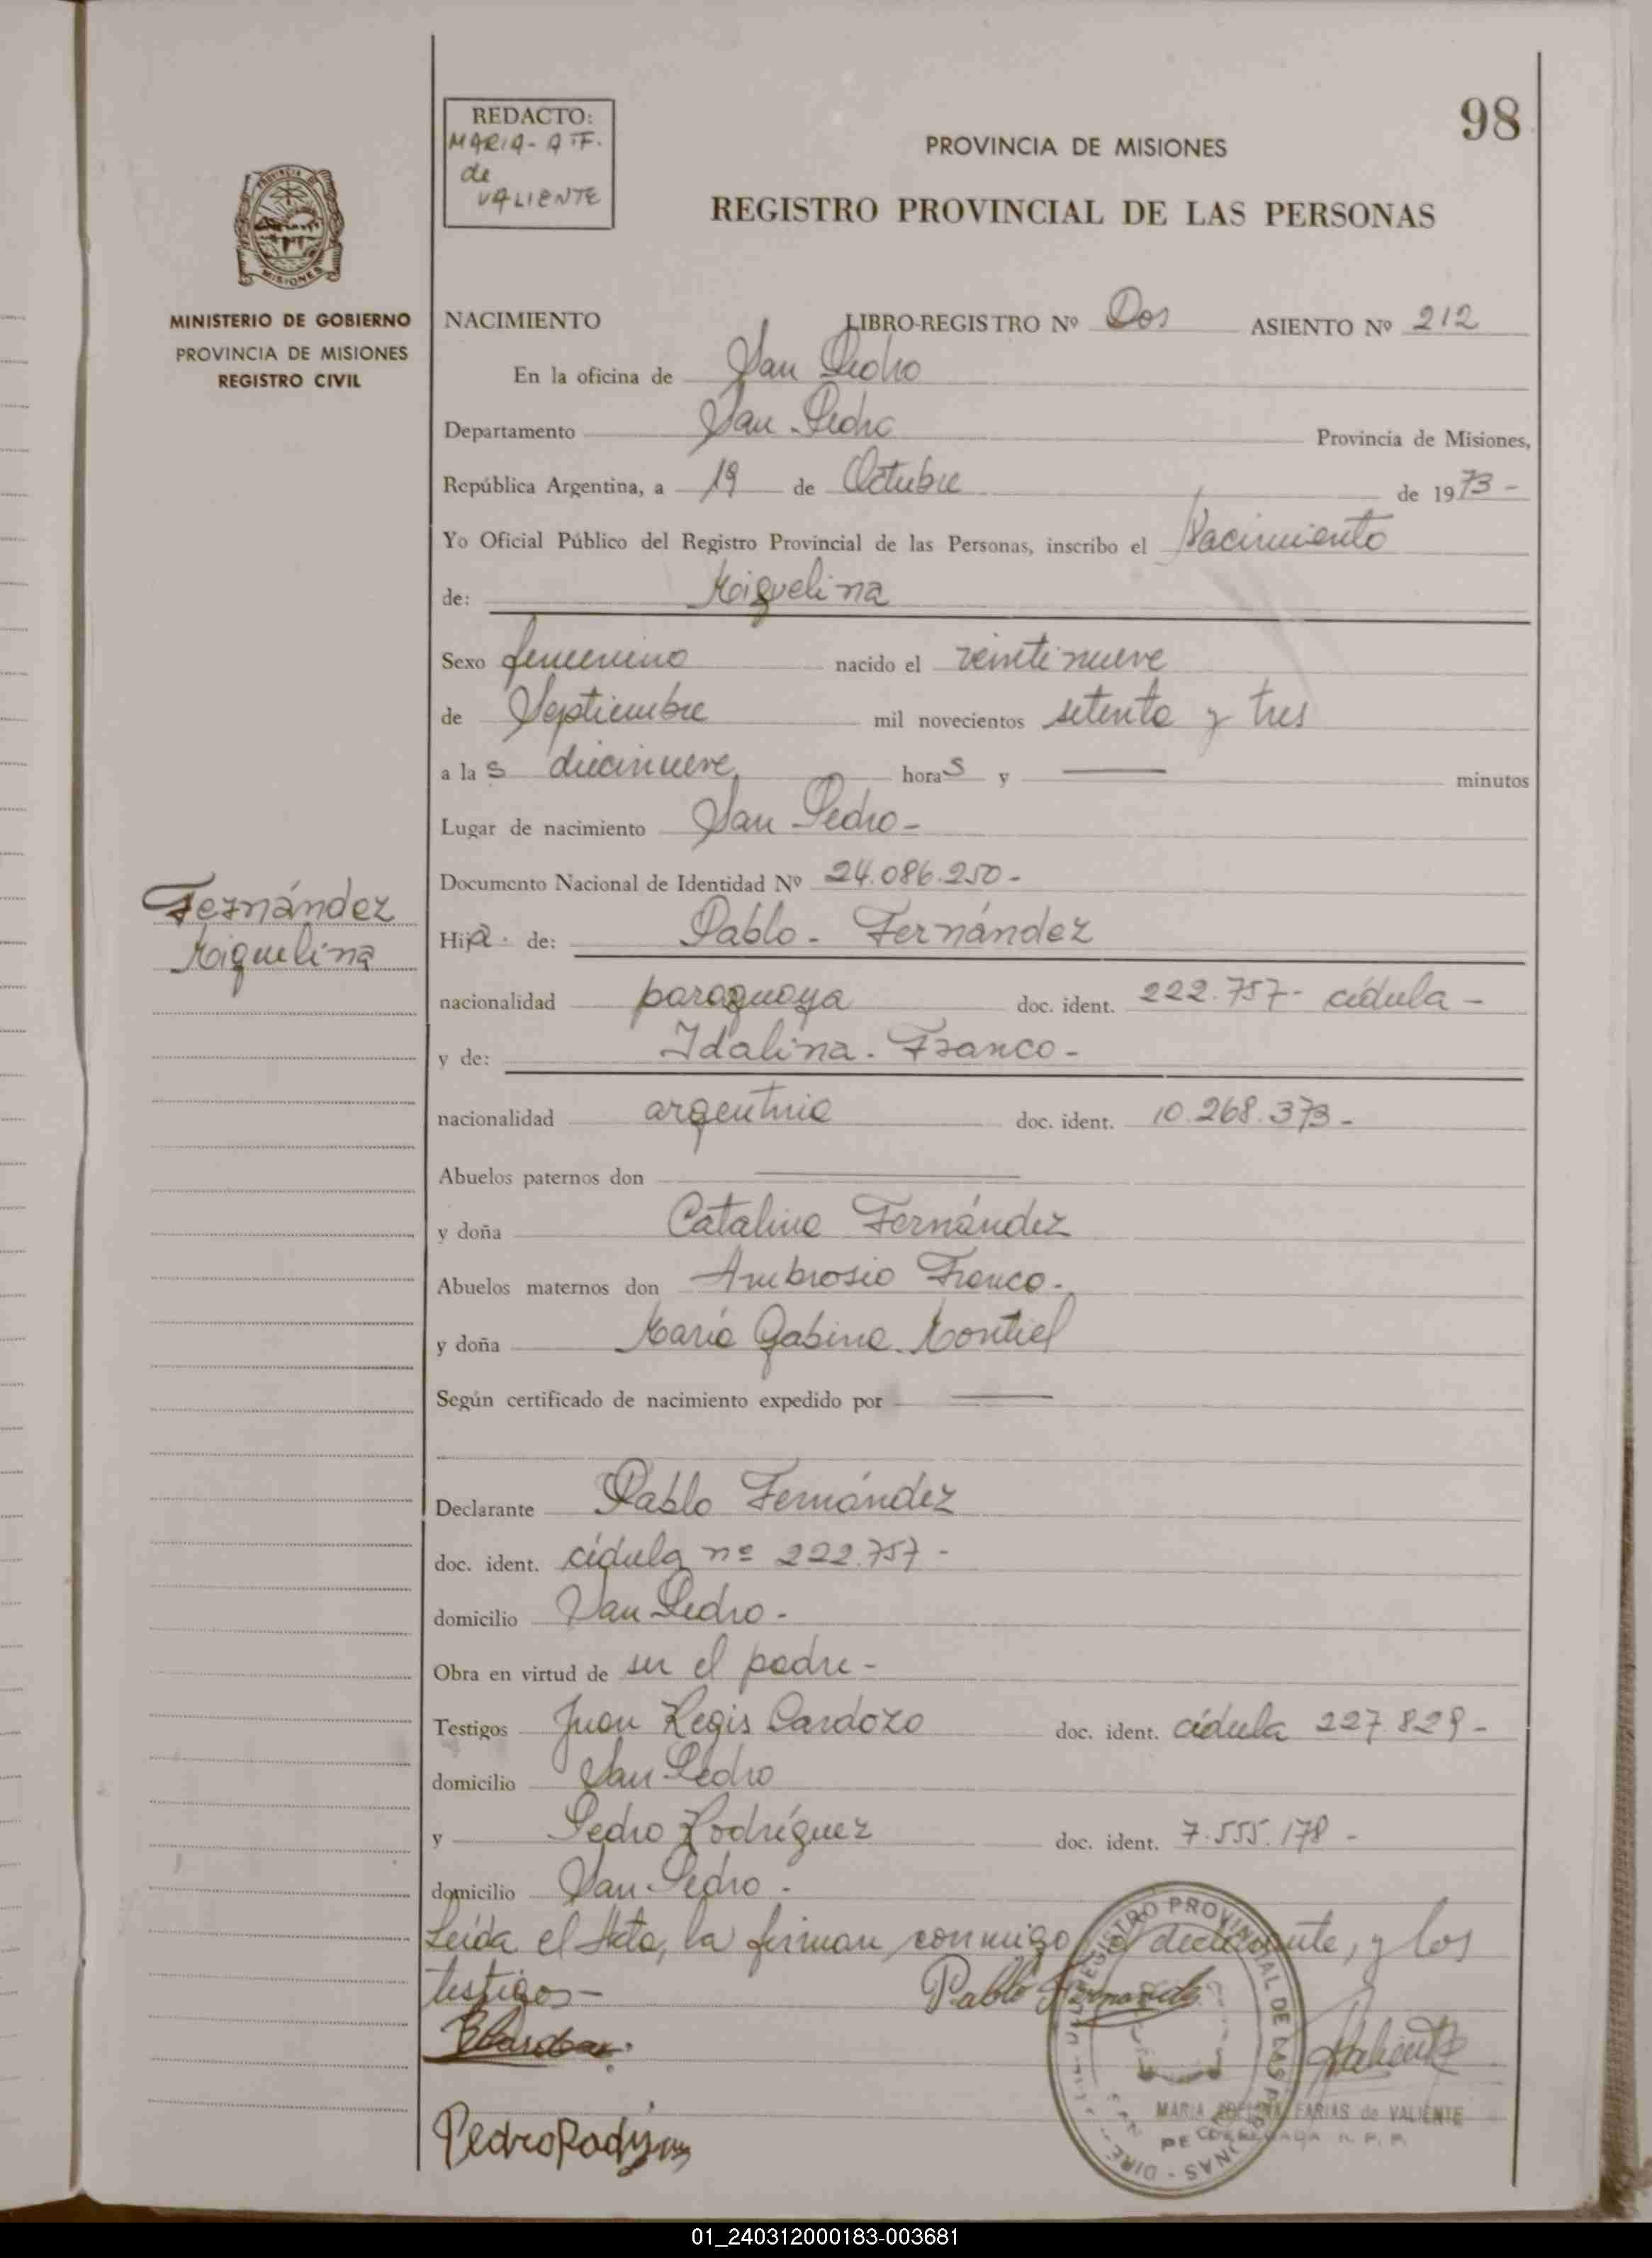 98
REDACTO:
MARIA - A F.
de
VALIENTE
PROVINCIA DE MISIONES
REGISTRO PROVINCIAL DE LAS PERSONAS
PROVINCIA DE
MISIONES
MINISTERIO DE GOBIERNO
PROVINCIA DE MISIONES
REGISTRO CIVIL
NACIMIENTO LIBRO-REGISTRO Nº Dos ASIENTO Nº 212
En la oficina de San Pedro
Departamento San Pedro Provincia de Misiones,
República Argentina, a 19 de Octubre de 1973 -
Yo Oficial Público del Registro Provincial de las Personas, inscribo el Nacimiento
de: Miguelina
Sexo femenino nacido el veintinueve
de Septiembre mil novecientos setenta y tres
a las diecinueve horas y — minutos
Lugar de nacimiento San Pedro -
Documento Nacional de Identidad Nº 24.086.250 -
Fernández
Miguelina
Hija de: Pablo - Fernández
nacionalidad paraguaya doc. ident. 222.757 - cédula -
y de: Idalina - Franco -
nacionalidad argentina doc. ident. 10.268.373 -
Abuelos paternos don —
y doña Catalina Fernández
Abuelos maternos don Ambrosio Franco -
y doña María Gabina Montiel
Según certificado de nacimiento expedido por —
Declarante Pablo Fernández
doc. ident. cédula nº 222.757 -
domicilio San Pedro -
Obra en virtud de ser el padre -
Testigos Juan Regis Cardozo doc. ident. cédula 227.829 -
domicilio San Pedro
y Pedro Rodríguez doc. ident. 7.555.178 -
domicilio San Pedro -
Leída el Acta, la firman conmigo el declarante, y los
testigos -
Pablo Fernandez
Valiente
MARIA FARIAS de VALIENTE
REGISTRO PROVINCIAL DE LAS PERSONAS
Pedro Rodriguez
01_240312000183-003681